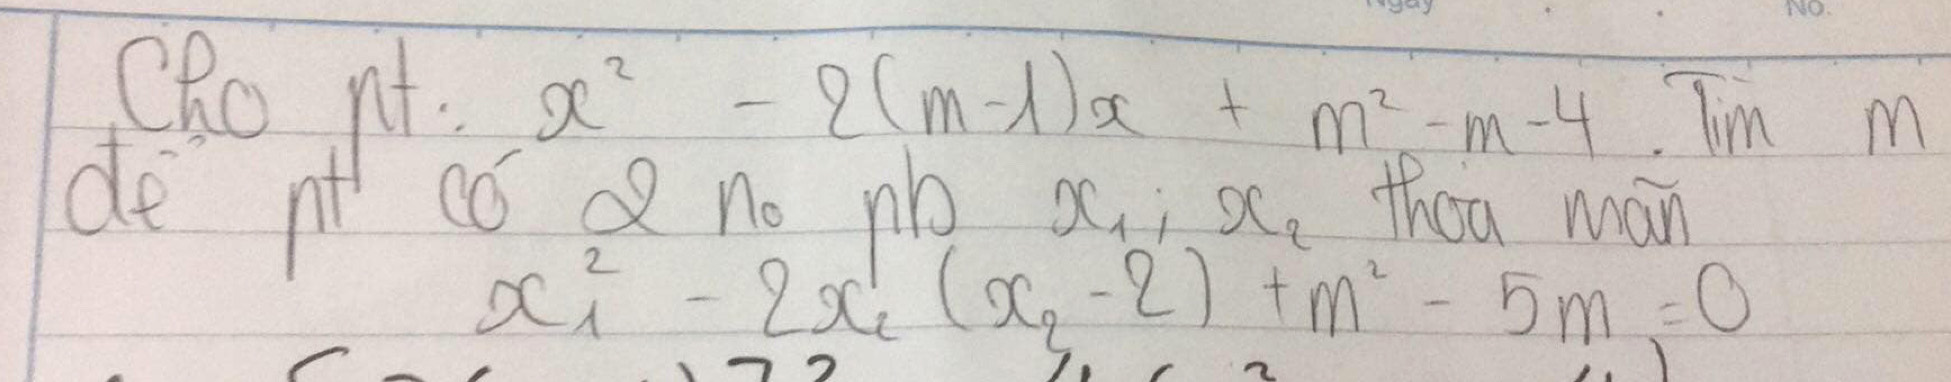 Ngày
No.
Cho pt: x² - 2(m-1)x + m² - m - 4. Tìm m
để pt có 2 no pb x₁; x₂ thỏa mãn
x₁² - 2x₂(x₂ - 2) + m² - 5m = 0